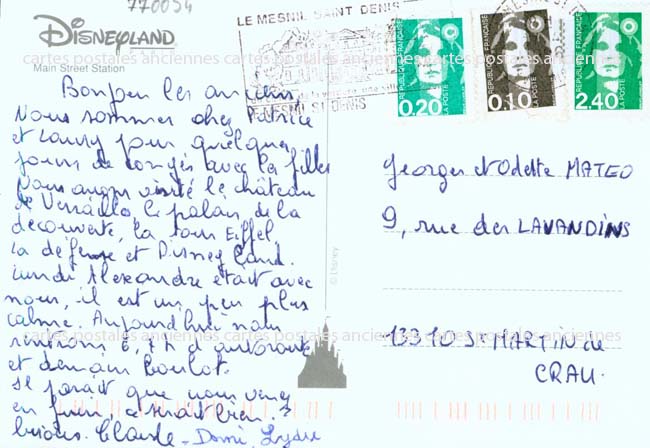 770054
DISNEYLAND
PARIS
Main Street Station
Bonjour les anciens
Nous sommes chez Patrice
et Laury pour quelques
jours de congés avec les filles
Nous avons visité le château
de Versailles, le palais de la
découverte, la tour Eiffel
la défense et Disney Land.
Lundi Alexandre était avec
nous, il est un peu plus
calme. Aujourd'hui nous
d'autoroute
et demain Boulot.
Il parait que vous venez
en Juin
bisous. Claude - Domi, Lydie
LE MESNIL SAINT DENIS
LE MESNIL ST DENIS
REPUBLIQUE FRANÇAISE
0,20
LA POSTE
REPUBLIQUE FRANÇAISE
0,10
LA POSTE
REPUBLIQUE FRANÇAISE
2,40
LA POSTE
© Disney
Georges et Odette MATEO
9, rue des LAVANDINS
13310 St MARTIN de
CRAU.
cartes postales anciennes cartes postales anciennes cartes postales anciennes
cartes postales anciennes cartes postales anciennes cartes postales anciennes